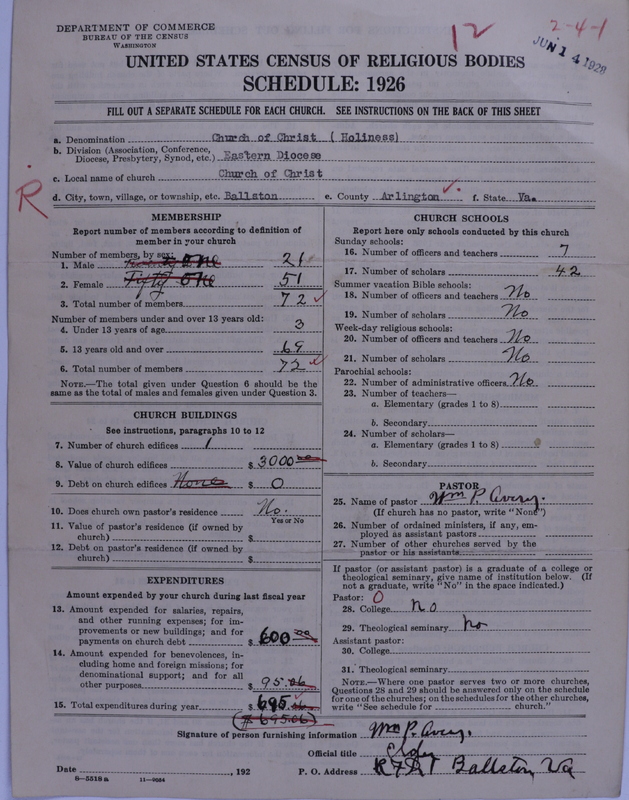 DEPARTMENT OF COMMERCE
BUREAU OF THE CENSUS
WASHINGTON
12
2-4-1
JUN 14 1928
UNITED STATES CENSUS OF RELIGIOUS BODIES
SCHEDULE: 1926
FILL OUT A SEPARATE SCHEDULE FOR EACH CHURCH. SEE INSTRUCTIONS ON THE BACK OF THIS SHEET
a. Denomination Church of Christ ( Holiness)
b. Division (Association, Conference, Diocese, Presbytery, Synod, etc.) Eastern Diocese
c. Local name of church Church of Christ
R
d. City, town, village, or township, etc. Ballston e. County Arlington f. State Va.
MEMBERSHIP
Report number of members according to definition of
member in your church
Number of members, by sex:
1. Male 21
2. Female Fifty One 51
3. Total number of members 72
Number of members under and over 13 years old:
4. Under 13 years of age 3
5. 13 years old and over 69
6. Total number of members 72
NOTE.—The total given under Question 6 should be
same as the total of males and females given under Question 3.
CHURCH BUILDINGS
See instructions, paragraphs 10 to 12
7. Number of church edifices 1
8. Value of church edifices $ 3000 00
9. Debt on church edifices None $ 0
10. Does church own pastor's residence No.
Yes or No
11. Value of pastor's residence (if owned by
church) $
12. Debt on pastor's residence (if owned by
church) $
EXPENDITURES
Amount expended by your church during last fiscal year
13. Amount expended for salaries, repairs,
and other running expenses; for im-
provements or new buildings; and for
payments on church debt $ 600 00
14. Amount expended for benevolences, in-
cluding home and foreign missions; for
denominational support; and for all
other purposes $ 95.06
15. Total expenditures during year $ 695.06
($695.06)
CHURCH SCHOOLS
Report here only schools conducted by this church
Sunday schools:
16. Number of officers and teachers 7
17. Number of scholars 42
Summer vacation Bible schools:
18. Number of officers and teachers No
19. Number of scholars No
Week-day religious schools:
20. Number of officers and teachers No
21. Number of scholars No
Parochial schools:
22. Number of administrative officers No
23. Number of teachers—
a. Elementary (grades 1 to 8)
b. Secondary
24. Number of scholars—
a. Elementary (grades 1 to 8)
b. Secondary
PASTOR
25. Name of pastor Wm P. Avery.
(If church has no pastor, write "None")
26. Number of ordained ministers, if any, em-
ployed as assistant pastors
27. Number of other churches served by the
pastor or his assistants
If pastor (or assistant pastor) is a graduate of a college or
theological seminary, give name of institution below. (If
not a graduate, write "No" in the space indicated.)
Pastor: 0
28. College No
29. Theological seminary No
Assistant pastor:
30. College
31. Theological seminary
NOTE.—Where one pastor serves two or more churches,
Questions 28 and 29 should be answered only on the schedule
for one of the churches; on the schedules for the other churches,
write "See schedule for church."
Signature of person furnishing information Wm P. Avery.
Official title Elder
Date , 192 P. O. Address Ballston Va
8—5518 a 11—9084